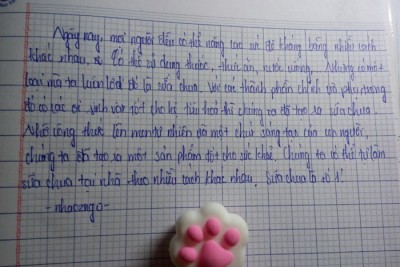 Ngày nay, mọi người đều có thể nâng cao sức đề kháng bằng nhiều cách
khác nhau, có thể sử dụng thuốc, thức ăn, nước uống. Nhưng có một
loại mà ta luôn đó là sữa chua. Với các thành phần chính và phụ trong
đó có các vi sinh vật tốt cho hệ tiêu hoá thì chúng ra đã tạo ra sữa chua.
Nhờ công thức lên men tự nhiên và một chút sáng tạo của con người,
chúng ta đã tạo ra một sản phẩm tốt cho sức khỏe. Chúng ta có thể tự làm
sữa chua tại nhà theo nhiều cách khác nhau. Sữa chua là số 1!